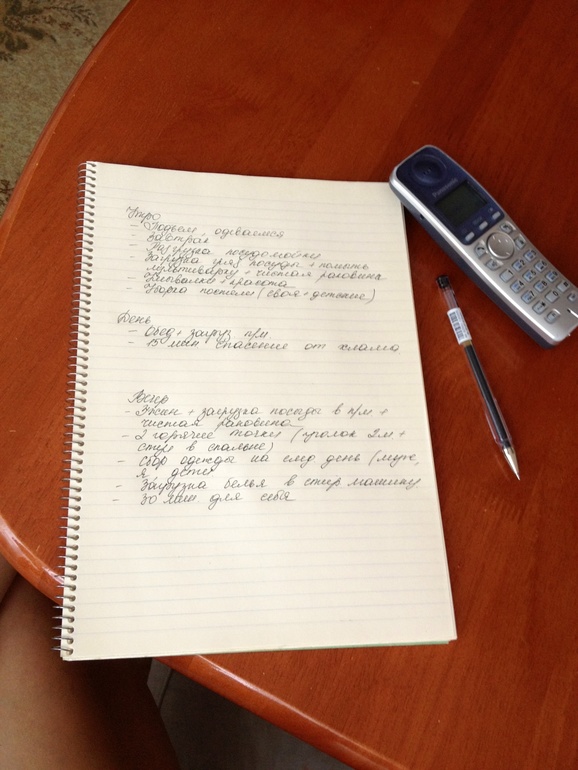 Утро
- Подъем, одеваемся
- Завтрак
- Разгрузка посудомойки
- Загрузка гряз посуды + помыть
мультиварку + чистая раковина
- Умывалка + красота
- Уборка постели (своя + детские)
День
- Обед + загруз п/м
- 15 мин спасение от хлама
Вечер
- Ужин + загрузка посуды в п/м +
чистая раковина
- 2 горячие точки (уголок Эм +
стул в спальне)
- сбор одежды на след день (муж,
я, дети)
- Загрузка белья в стир машину
- 30 мин для себя
Panasonic